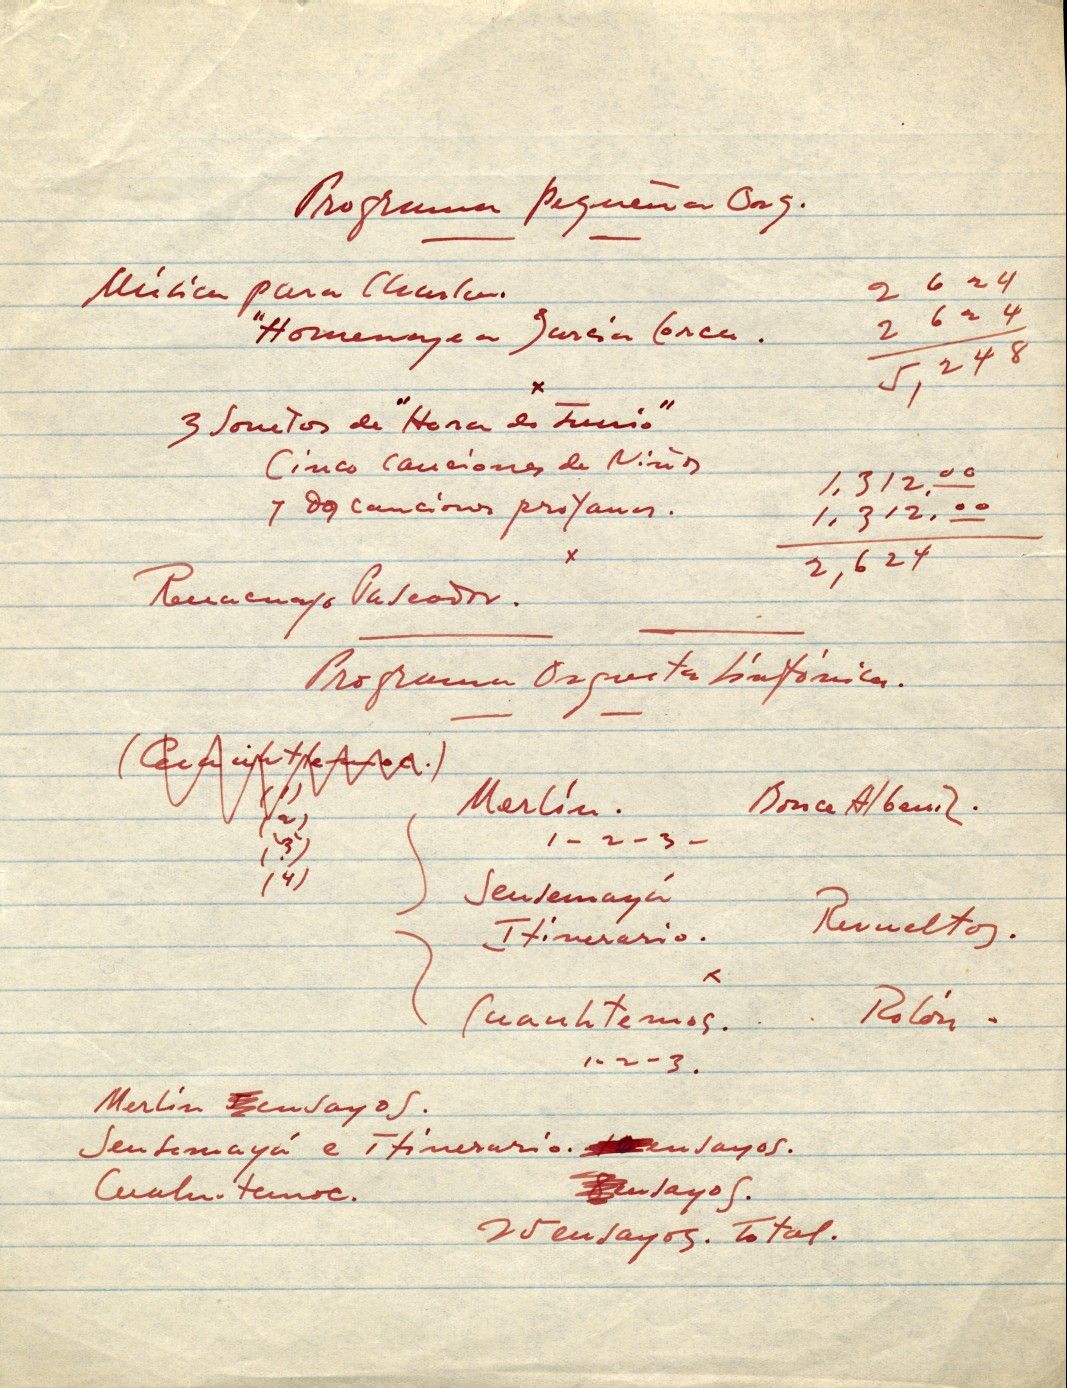 Programa pequeña Orq.
Música para Charlar.
"Homenaje a García Lorca.
2 6 2 4
2 6 2 4
5, 2 4 8
x
3 Sonetos de "Hora de Junio"
Cinco canciones de Niños
y dos canciones profanas.
1,312.00
1,312.00
2,624
x
Renacuajo Paseador.
Programa Orquesta Sinfónica.
(Cuauhtemoc.)
(1)
(2)
(3)
(4)
Merlín. Albeniz.
1 - 2 - 3 -
Sensemayá
Itinerario. Revueltas.
x
Cuauhtemoc. Rolón.
1 - 2 - 3.
Merlín ensayos.
Sensemayá e Itinerario. ensayos.
Cuauhtemoc. ensayos.
25 ensayos. Total.